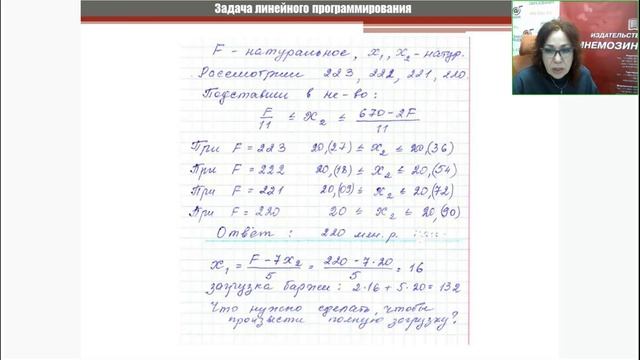 Задача линейного программирования
F - натуральное, x₁, x₂ - натур.
Рассмотрим 223, 222, 221, 220
Подставим в не-во:
F/11 ≤ x₂ ≤ (670-2F)/11
При F = 223 20,(27) ≤ x₂ ≤ 20,(36)
При F = 222 20,(18) ≤ x₂ ≤ 20,(54)
При F = 221 20,(09) ≤ x₂ ≤ 20,(72)
При F = 220 20 ≤ x₂ ≤ 20,(90)
Ответ: 220 млн. р.
x₁ = (F-7x₂)/5 = (220-7·20)/5 = 16
загрузка баржи: 2·16 + 5·20 = 132
Что нужно сделать, чтобы
произвести полную загрузку?
ИЗДАТЕЛЬСТВ
МНЕМОЗИН